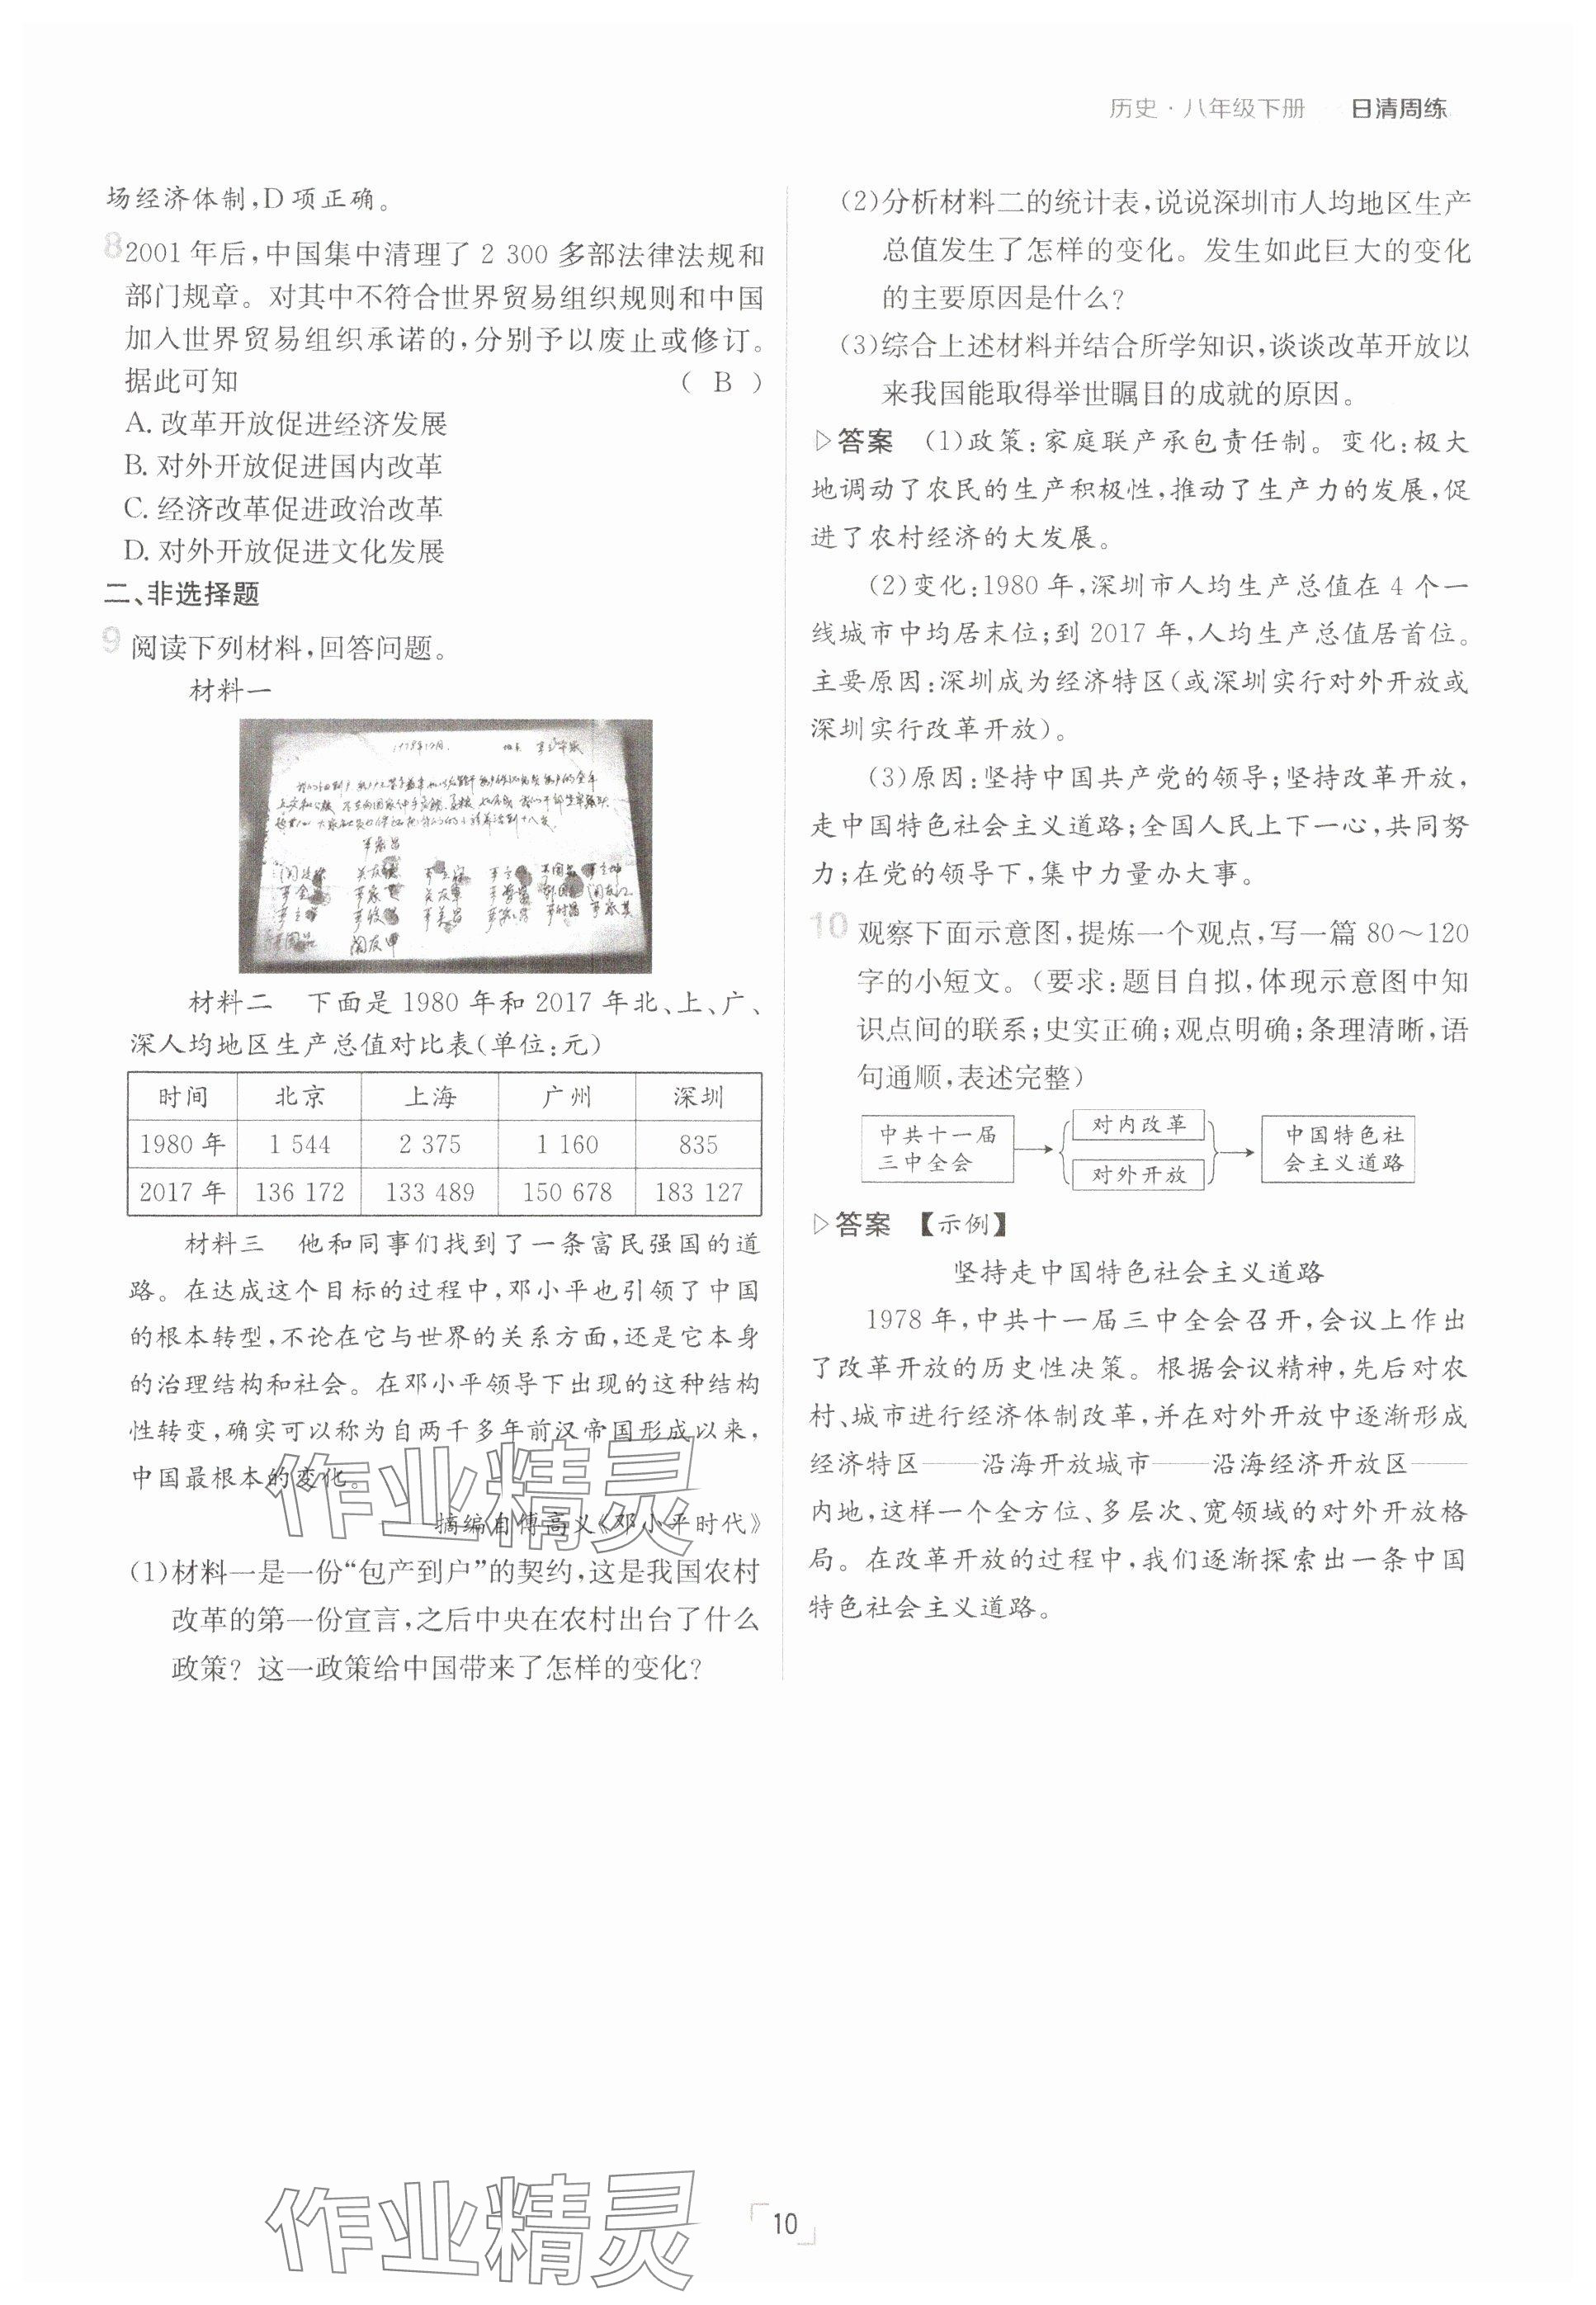 历史·八年级下册 日清周练
场经济体制，D项正确。
8 2001年后，中国集中清理了2 300多部法律法规和
部门规章。对其中不符合世界贸易组织规则和中国
加入世界贸易组织承诺的，分别予以废止或修订。
据此可知 （ B ）
A. 改革开放促进经济发展
B. 对外开放促进国内改革
C. 经济改革促进政治改革
D. 对外开放促进文化发展
二、非选择题
9 阅读下列材料，回答问题。
材料一
材料二 下面是1980年和2017年北、上、广、
深人均地区生产总值对比表(单位:元)
时间 北京 上海 广州 深圳
1980年 1 544 2 375 1 160 835
2017年 136 172 133 489 150 678 183 127
材料三 他和同事们找到了一条富民强国的道
路。在达成这个目标的过程中，邓小平也引领了中国
的根本转型，不论在它与世界的关系方面，还是它本身
的治理结构和社会。在邓小平领导下出现的这种结构
性转变，确实可以称为自两千多年前汉帝国形成以来，
中国最根本的变化。
摘编自傅高义《邓小平时代》
(1)材料一是一份“包产到户”的契约，这是我国农村
改革的第一份宣言，之后中央在农村出台了什么
政策？这一政策给中国带来了怎样的变化？
(2)分析材料二的统计表，说说深圳市人均地区生产
总值发生了怎样的变化。发生如此巨大的变化
的主要原因是什么？
(3)综合上述材料并结合所学知识，谈谈改革开放以
来我国能取得举世瞩目的成就的原因。
▷答案 (1)政策：家庭联产承包责任制。变化：极大
地调动了农民的生产积极性，推动了生产力的发展，促
进了农村经济的大发展。
(2)变化：1980年，深圳市人均生产总值在4个一
线城市中均居末位；到2017年，人均生产总值居首位。
主要原因：深圳成为经济特区(或深圳实行对外开放或
深圳实行改革开放)。
(3)原因：坚持中国共产党的领导；坚持改革开放，
走中国特色社会主义道路；全国人民上下一心，共同努
力；在党的领导下，集中力量办大事。
10 观察下面示意图，提炼一个观点，写一篇80～120
字的小短文。(要求：题目自拟，体现示意图中知
识点间的联系；史实正确；观点明确；条理清晰，语
句通顺，表述完整)
中共十一届
三中全会
对内改革
对外开放
中国特色社
会主义道路
▷答案 【示例】
坚持走中国特色社会主义道路
1978年，中共十一届三中全会召开，会议上作出
了改革开放的历史性决策。根据会议精神，先后对农
村、城市进行经济体制改革，并在对外开放中逐渐形成
经济特区——沿海开放城市——沿海经济开放区——
内地，这样一个全方位、多层次、宽领域的对外开放格
局。在改革开放的过程中，我们逐渐探索出一条中国
特色社会主义道路。
作业精灵
作业精灵
10